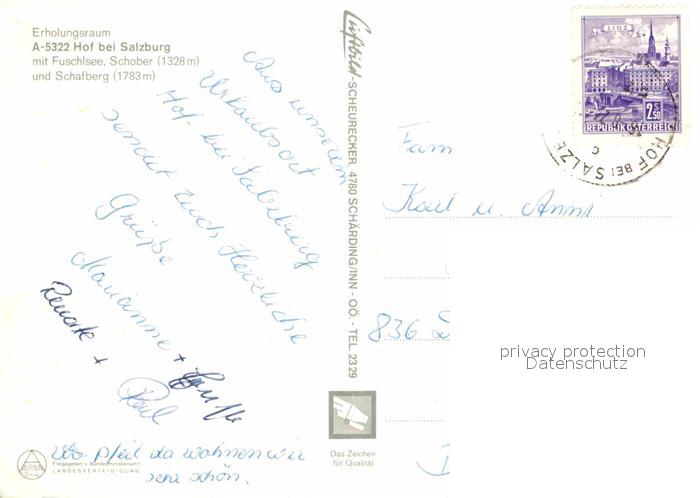 Erholungsraum
A-5322 Hof bei Salzburg
mit Fuschlsee, Schober (1328 m)
und Schafberg (1783 m)
Aus unserem
Urlaubsort
Hof bei Salzburg
sendet Euch Herzliche
Grüße
Marianne +
Renate +
Paul
Wo Pfeil da wohnen wir
sehr schön.
ALPINA
Freigegeben v. Bundesministerium f.
LANDESVERTEIDIGUNG
Luftbild-SCHEURECKER 4780 SCHÄRDING/INN - OÖ. - TEL. 2329
Das Zeichen
für Qualität
LINZ
2.50
REPUBLIK ÖSTERREICH
HOF BEI SALZB
Fam
Karl u. Anna
836 D
privacy protection
Datenschutz